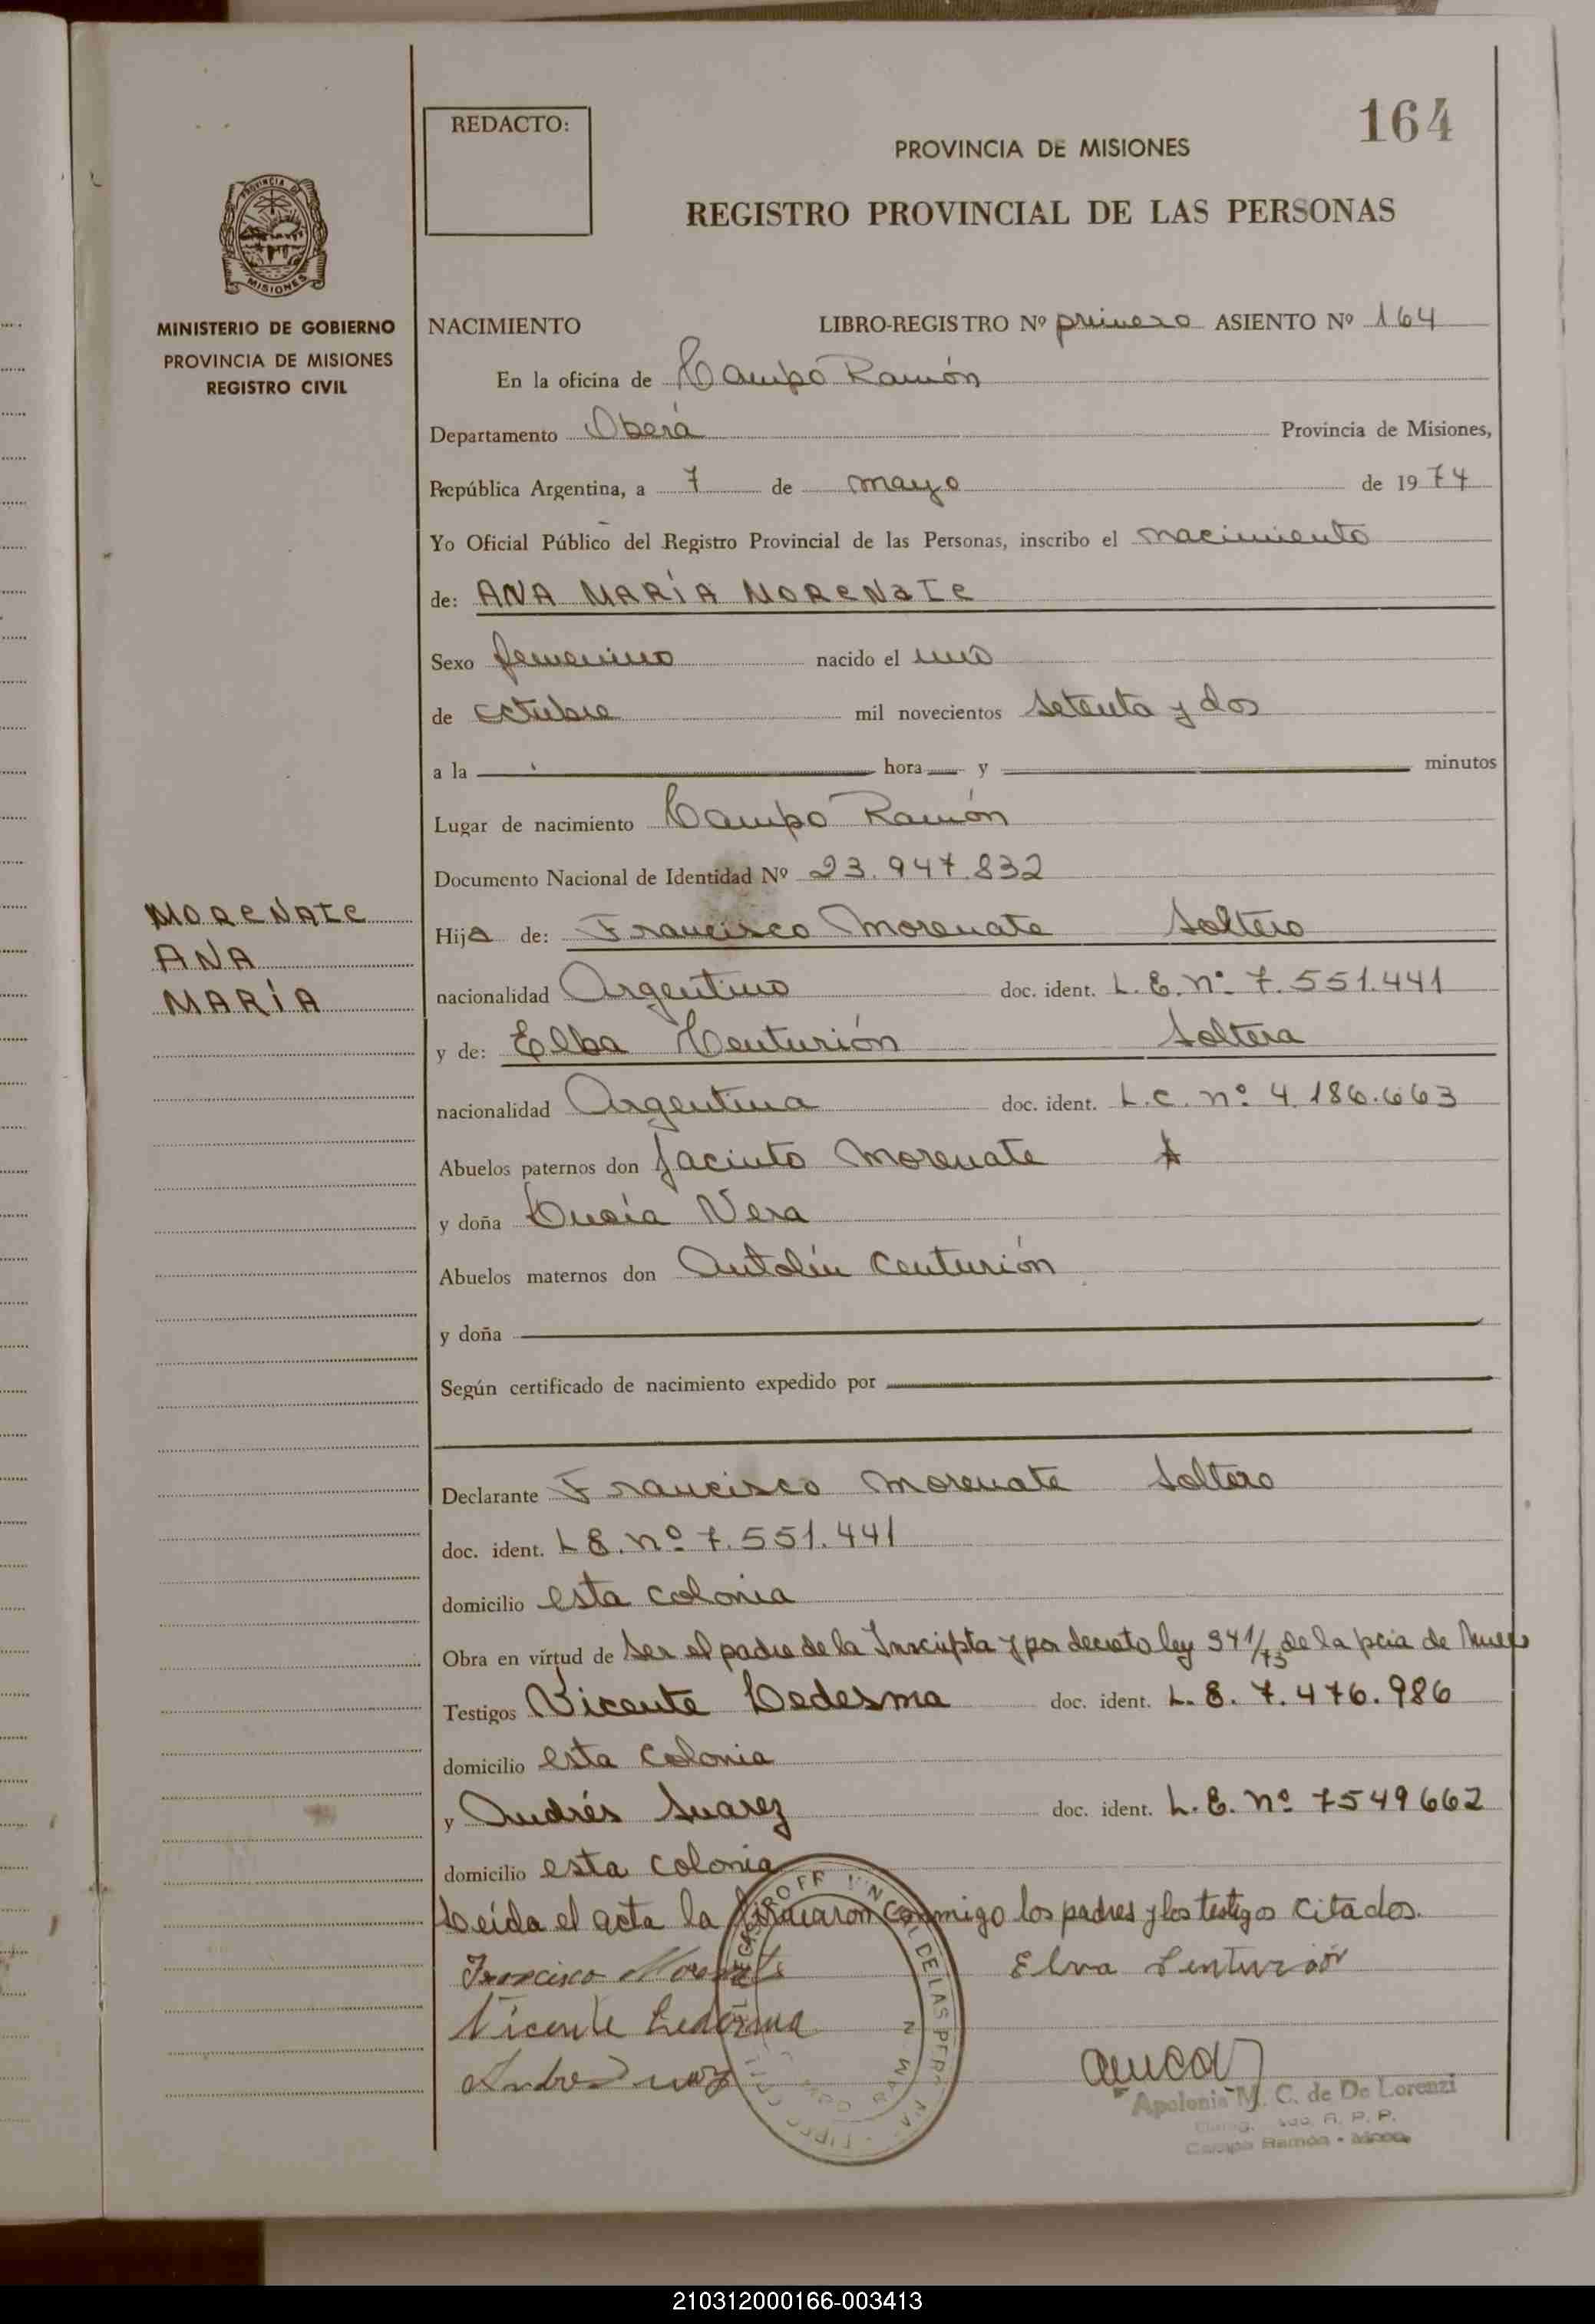 164
REDACTO:
PROVINCIA DE MISIONES
REGISTRO PROVINCIAL DE LAS PERSONAS
PROVINCIA DE
MISIONES
MINISTERIO DE GOBIERNO
PROVINCIA DE MISIONES
REGISTRO CIVIL
NACIMIENTO LIBRO-REGISTRO Nº primero ASIENTO Nº 164
En la oficina de Campo Ramón
Departamento Oberá Provincia de Misiones,
República Argentina, a 7 de mayo de 1974
Yo Oficial Público del Registro Provincial de las Personas, inscribo el nacimiento
de: ANA MARÍA MORENATE
Sexo femenino nacido el uno
de octubre mil novecientos setenta y dos
a la hora y minutos
Lugar de nacimiento Campo Ramón
Documento Nacional de Identidad Nº 23.947.832
MORENATE
ANA
MARÍA
Hija de: Francisco Morenate Soltero
nacionalidad Argentino doc. ident. L.E. nº 7.551.441
y de: Elba Centurión Soltera
nacionalidad Argentina doc. ident. L.C. nº 4.186.663
Abuelos paternos don Jacinto Morenate
y doña Vera
Abuelos maternos don Antolín Centurión
y doña
Según certificado de nacimiento expedido por
Declarante Francisco Morenate Soltero
doc. ident. L E. nº 7.551.441
domicilio esta colonia
Obra en virtud de ser el padre de la Inscripta y por decreto ley 941/73 de la pcia de
Testigos Vicente Ledesma doc. ident. L. E. 7.476.986
domicilio esta colonia
y Andrés Suarez doc. ident. L. E. nº 7549662
domicilio esta colonia
Leída el acta la firmaron conmigo los padres y los testigos citados.
Francisco Morenate Elva Senturión
Vicente Ledesma
Apolonia M. C. de De Lorenzi
R. P. P.
Campo Ramón - Mnes.
210312000166-003413